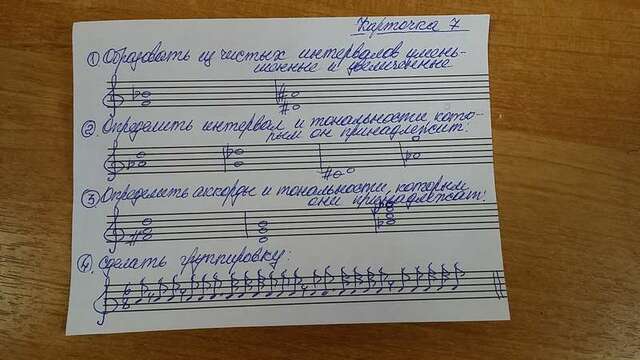 Карточка 7
① Образовать из чистых интервалов умень-
шенные и увеличенные
② Определить интервал и тональности кото-
рым он принадлежит.
③ Определить аккорды и тональности, которым
они принадлежат.
④ Сделать группировку:
6
8